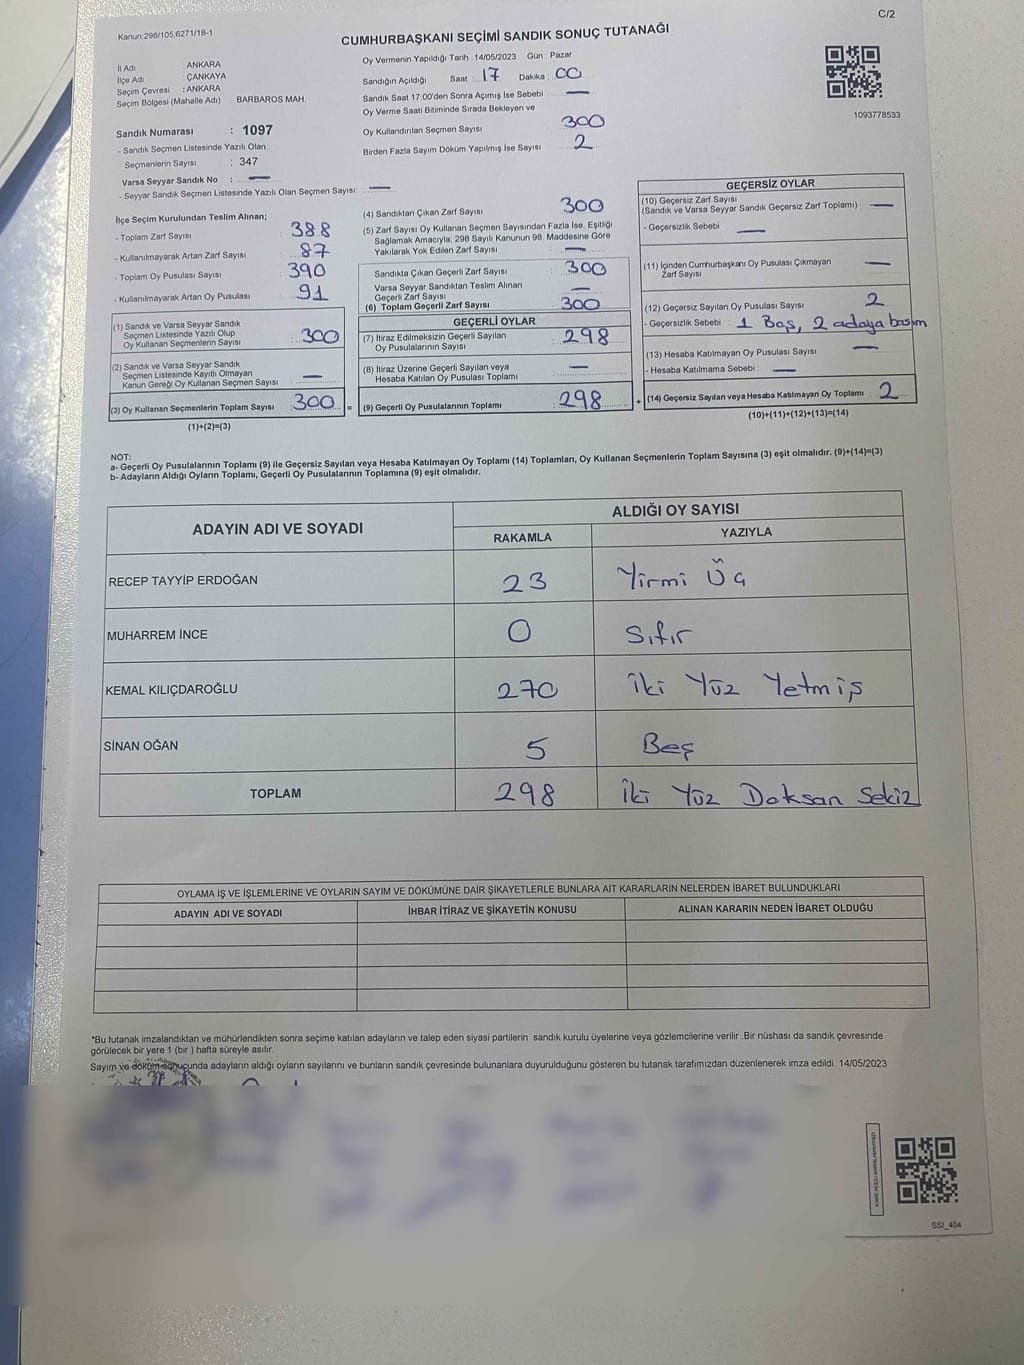 C/2
Kanun:298/105,6271/18-1
CUMHURBAŞKANI SEÇİMİ SANDIK SONUÇ TUTANAĞI
İl Adı : ANKARA
İlçe Adı : ÇANKAYA
Seçim Çevresi : ANKARA
Seçim Bölgesi (Mahalle Adı) : BARBAROS MAH.
Oy Vermenin Yapıldığı Tarih : 14/05/2023 Gün : Pazar
Sandığın Açıldığı Saat : 17 Dakika : 00
Sandık Saat 17:00'den Sonra Açılmış İse Sebebi : —
Oy Verme Saati Bitiminde Sırada Bekleyen ve
Oy Kullandırılan Seçmen Sayısı : 300
Birden Fazla Sayım Döküm Yapılmış İse Sayısı : 2
1093778533
Sandık Numarası : 1097
- Sandık Seçmen Listesinde Yazılı Olan
Seçmenlerin Sayısı : 347
Varsa Seyyar Sandık No : —
- Seyyar Sandık Seçmen Listesinde Yazılı Olan Seçmen Sayısı: —
İlçe Seçim Kurulundan Teslim Alınan;
- Toplam Zarf Sayısı : 388
- Kullanılmayarak Artan Zarf Sayısı : 87
- Toplam Oy Pusulası Sayısı : 390
- Kullanılmayarak Artan Oy Pusulası : 91
(1) Sandık ve Varsa Seyyar Sandık
Seçmen Listesinde Yazılı Olup
Oy Kullanan Seçmenlerin Sayısı : 300
(2) Sandık ve Varsa Seyyar Sandık
Seçmen Listesinde Kayıtlı Olmayan
Kanun Gereği Oy Kullanan Seçmen Sayısı : —
(3) Oy Kullanan Seçmenlerin Toplam Sayısı : 300 =
(1)+(2)=(3)
(4) Sandıktan Çıkan Zarf Sayısı : 300
(5) Zarf Sayısı Oy Kullanan Seçmen Sayısından Fazla İse, Eşitliği
Sağlamak Amacıyla; 298 Sayılı Kanunun 98. Maddesine Göre
Yakılarak Yok Edilen Zarf Sayısı : —
Sandıkta Çıkan Geçerli Zarf Sayısı : 300
Varsa Seyyar Sandıktan Teslim Alınan
Geçerli Zarf Sayısı : —
(6) Toplam Geçerli Zarf Sayısı : 300
GEÇERLİ OYLAR
(7) İtiraz Edilmeksizin Geçerli Sayılan
Oy Pusulalarının Sayısı : 298
(8) İtiraz Üzerine Geçerli Sayılan veya
Hesaba Katılan Oy Pusulası Toplamı : —
(9) Geçerli Oy Pusulalarının Toplamı : 298 +
GEÇERSİZ OYLAR
(10) Geçersiz Zarf Sayısı
(Sandık ve Varsa Seyyar Sandık Geçersiz Zarf Toplamı) : —
- Geçersizlik Sebebi : —
(11) İçinden Cumhurbaşkanı Oy Pusulası Çıkmayan
Zarf Sayısı : —
(12) Geçersiz Sayılan Oy Pusulası Sayısı : 2
- Geçersizlik Sebebi : 1 Boş, 2 adaya basım
(13) Hesaba Katılmayan Oy Pusulası Sayısı : —
- Hesaba Katılmama Sebebi : —
(14) Geçersiz Sayılan veya Hesaba Katılmayan Oy Toplamı : 2
(10)+(11)+(12)+(13)=(14)
NOT:
a- Geçerli Oy Pusulalarının Toplamı (9) ile Geçersiz Sayılan veya Hesaba Katılmayan Oy Toplamı (14) Toplamları, Oy Kullanan Seçmenlerin Toplam Sayısına (3) eşit olmalıdır. (9)+(14)=(3)
b- Adayların Aldığı Oyların Toplamı, Geçerli Oy Pusulalarının Toplamına (9) eşit olmalıdır.
ADAYIN ADI VE SOYADI
ALDIĞI OY SAYISI
RAKAMLA YAZIYLA
RECEP TAYYİP ERDOĞAN 23 Yirmi Üç
MUHARREM İNCE 0 Sıfır
KEMAL KILIÇDAROĞLU 270 İki Yüz Yetmiş
SİNAN OĞAN 5 Beş
TOPLAM 298 İki Yüz Doksan Sekiz
OYLAMA İŞ VE İŞLEMLERİNE VE OYLARIN SAYIM VE DÖKÜMÜNE DAİR ŞİKAYETLERLE BUNLARA AİT KARARLARIN NELERDEN İBARET BULUNDUKLARI
ADAYIN ADI VE SOYADI İHBAR İTİRAZ VE ŞİKAYETİN KONUSU ALINAN KARARIN NEDEN İBARET OLDUĞU
*Bu tutanak imzalandıktan ve mühürlendikten sonra seçime katılan adayların ve talep eden siyasi partilerin sandık kurulu üyelerine veya gözlemcilerine verilir .Bir nüshası da sandık çevresinde
görülecek bir yere 1 (bir ) hafta süreyle asılır.
Sayım ve döküm sonucunda adayların aldığı oyların sayılarını ve bunların sandık çevresinde bulunanlara duyurulduğunu gösteren bu tutanak tarafımızdan düzenlenerek imza edildi. 14/05/2023
SSI_404